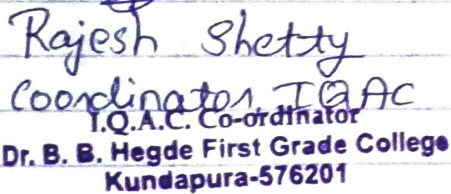 Rajesh Shetty
Coordinator, IQAC
I.Q.A.C. Co-ordinator
Dr. B. B. Hegde First Grade College
Kundapura-576201